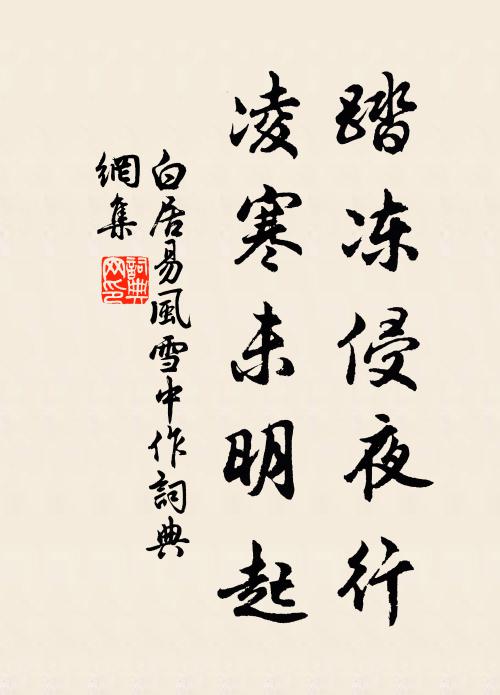 踏冻侵夜行
凌寒未明起
白居易風雪中作詞典
網集
詞典網印